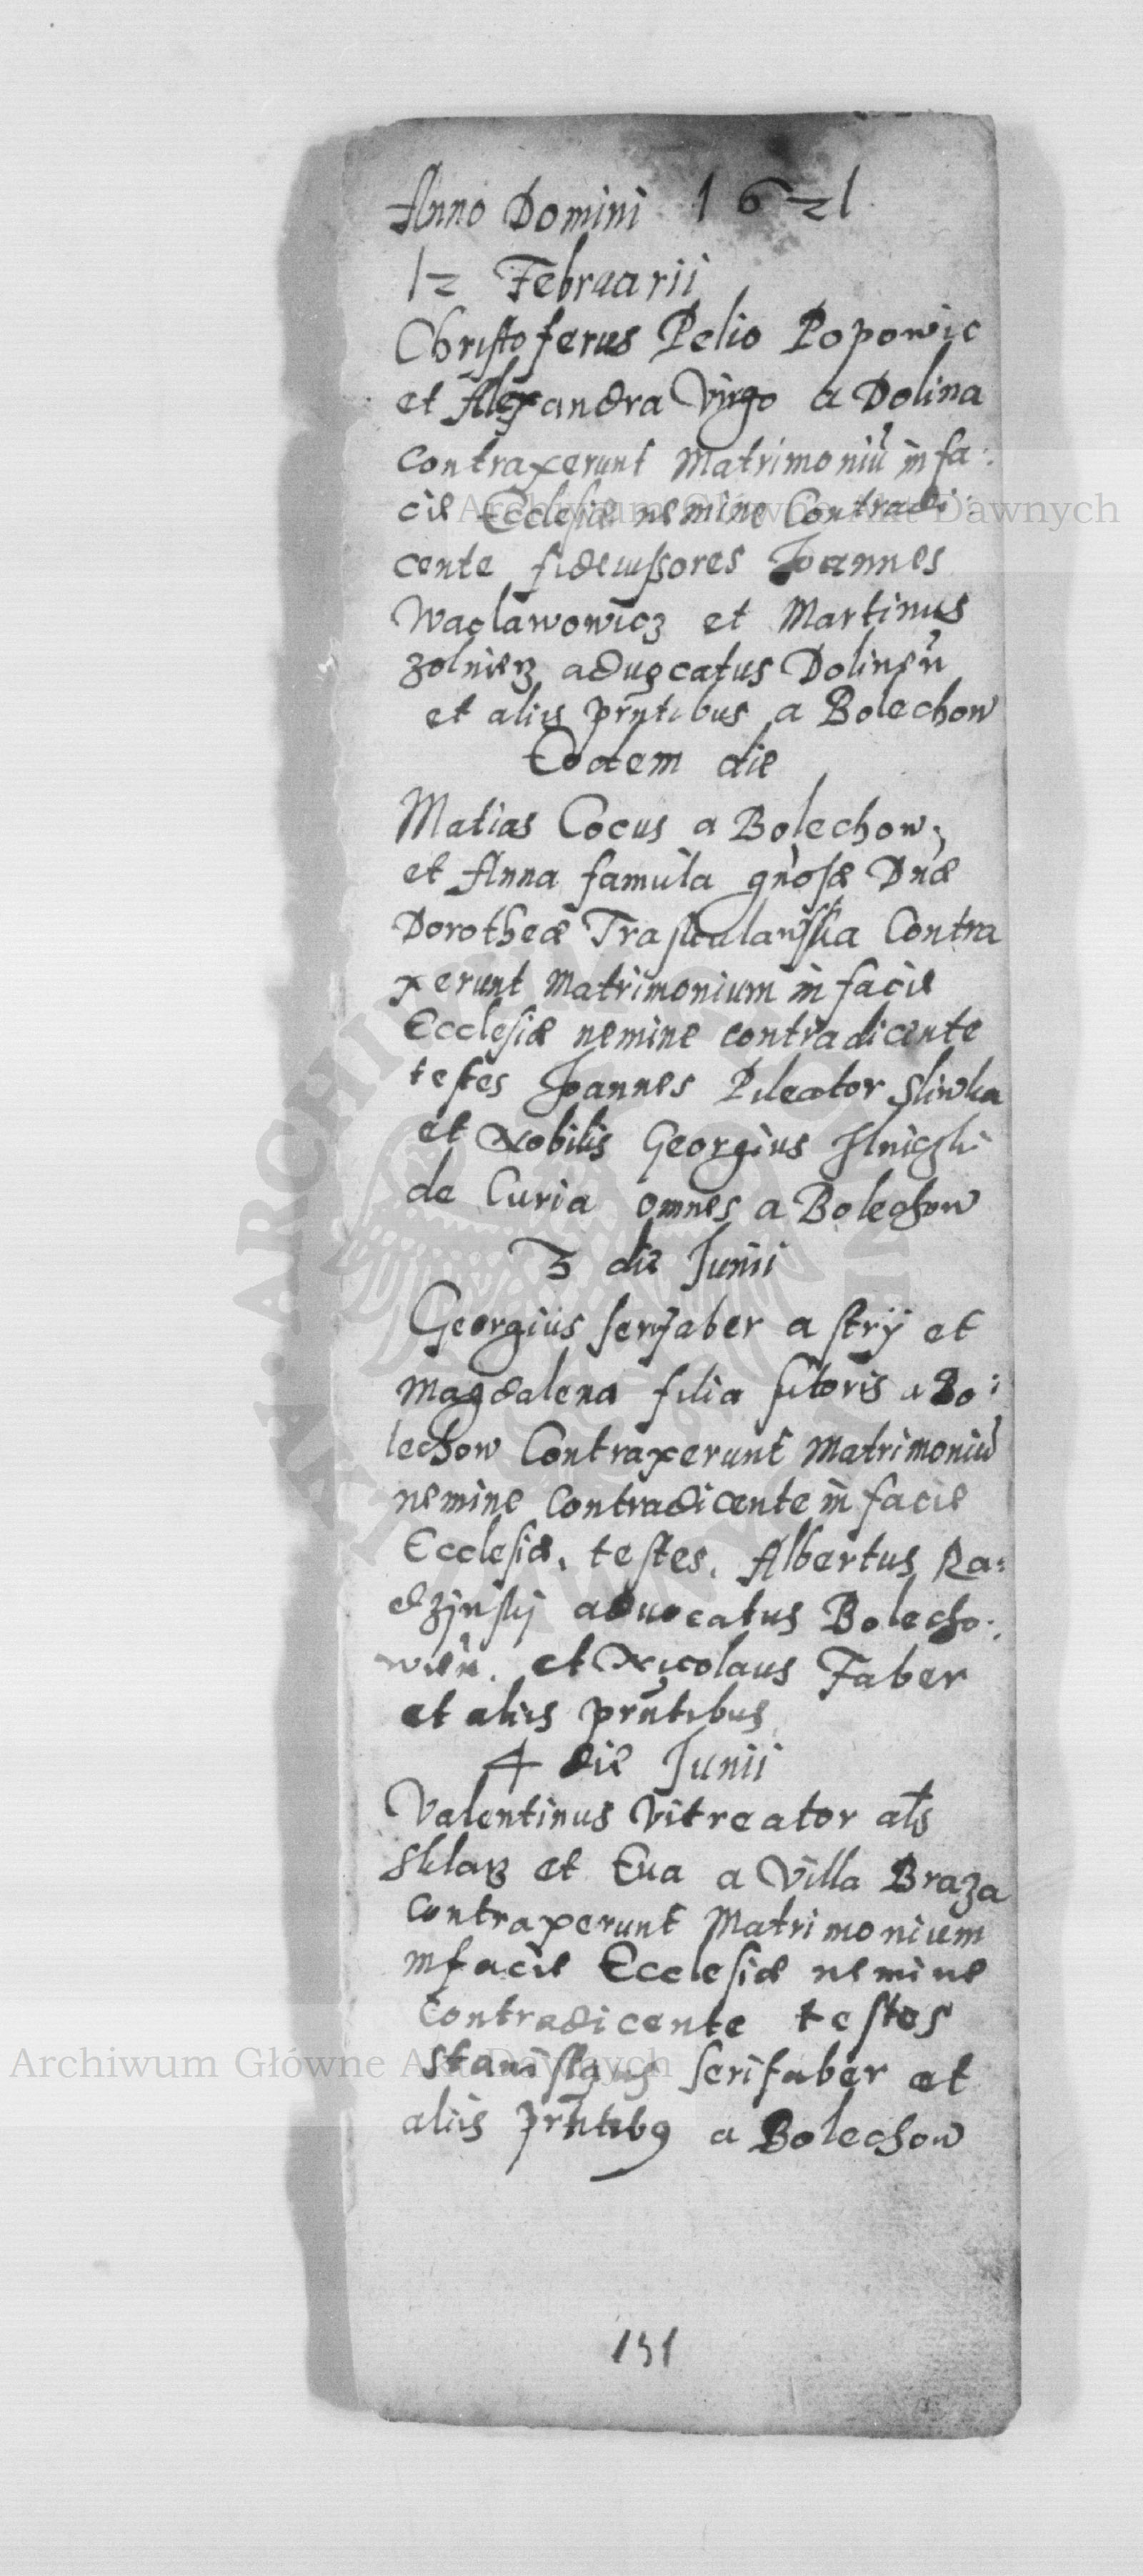 Anno Domini 1621
12 Februarii
Christoferus Pelio Popowic
et Alexandra Virgo a Dolina
contraxerunt Matrimoniũ in fa:
cie Ecclesiæ nemine Contradi
cente fideiussores Joannes
Waclawowicz et Martinus
Zolnierz aduocatus Dolineñ
et aliis prñtibus a Bolechow
Eodem die
Matias Cocus a Bolechow,
et Anna famula gñosæ Dnæ
Dorotheæ Contra
xerunt Matrimonium in facie
Ecclesiæ nemine contradicente
testes Joannes Pileator Sliwka
et Nobilis Georgius
de Curia omnes a Bolechow
3 die Junii
Georgius serifaber a Strij et
Magdalena filia sutoris a Bo:
lechow Contraxerunt Matrimoniũ
nemine Contradicente in facie
Ecclesiæ. testes. Albertus Ra:
dzinskij aduocatus Bolecho:
wieñ. et Nicolaus Faber
et aliis prñtibus
4 die Junii
Valentinus Vitreator als
Sklarz et Eua a Villa Braza
contraxerunt Matrimonium
in facie Ecclesiæ nemine
contradicente testes
Stanislaus serifaber et
aliis prñtibꝰ a Bolechow
151
Archiwum Główne Akt Dawnych
Archiwum Główne Akt Dawnych